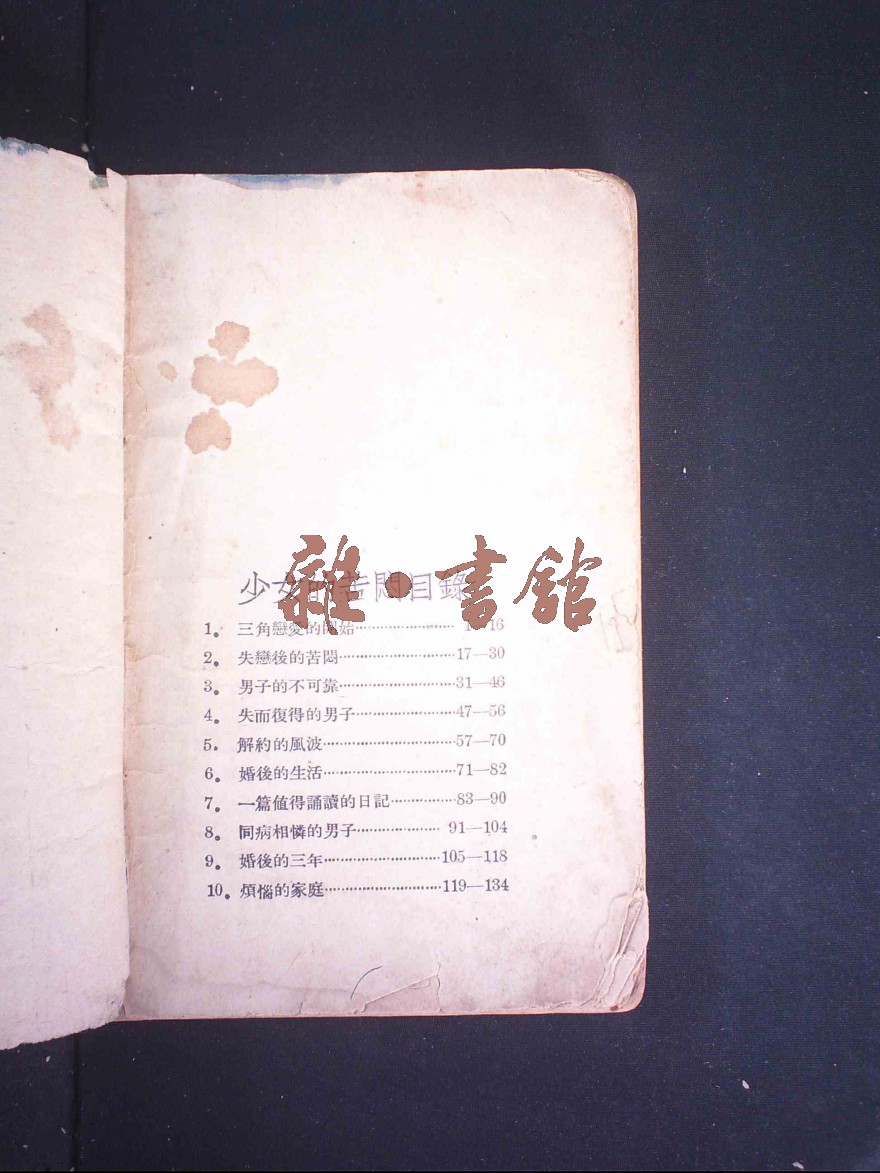 少女的苦悶目錄
雜·書館
1。 三角戀愛的開始⋯⋯⋯⋯⋯⋯ 1—16
2。 失戀後的苦悶⋯⋯⋯⋯⋯⋯⋯17—30
3。 男子的不可靠⋯⋯⋯⋯⋯⋯⋯31—46
4。 失而復得的男子⋯⋯⋯⋯⋯⋯47—56
5。 解約的風波⋯⋯⋯⋯⋯⋯⋯⋯57—70
6。 婚後的生活⋯⋯⋯⋯⋯⋯⋯⋯71—82
7。 一篇值得誦讀的日記⋯⋯⋯⋯83—90
8。 同病相憐的男子⋯⋯⋯⋯⋯ 91—104
9。 婚後的三年⋯⋯⋯⋯⋯⋯⋯105—118
10。 煩惱的家庭⋯⋯⋯⋯⋯⋯⋯119—134